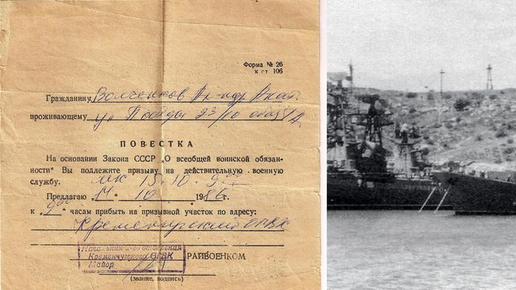 Форма № 26
к ст. 106
Гражданину
проживающему ул Победы 23/10
ПОВЕСТКА
На основании Закона СССР „О всеобщей воинской обязан-
ности" Вы подлежите призыву на действительную военную
службу.
Предлагаю 14. 10 1986 г.
к 9 00 часам прибыть на призывной участок по адресу:
Кременчугский ОГВК
Кременчугского ОГВК
Майор
РАЙВОЕНКОМ
(звание, подпись)